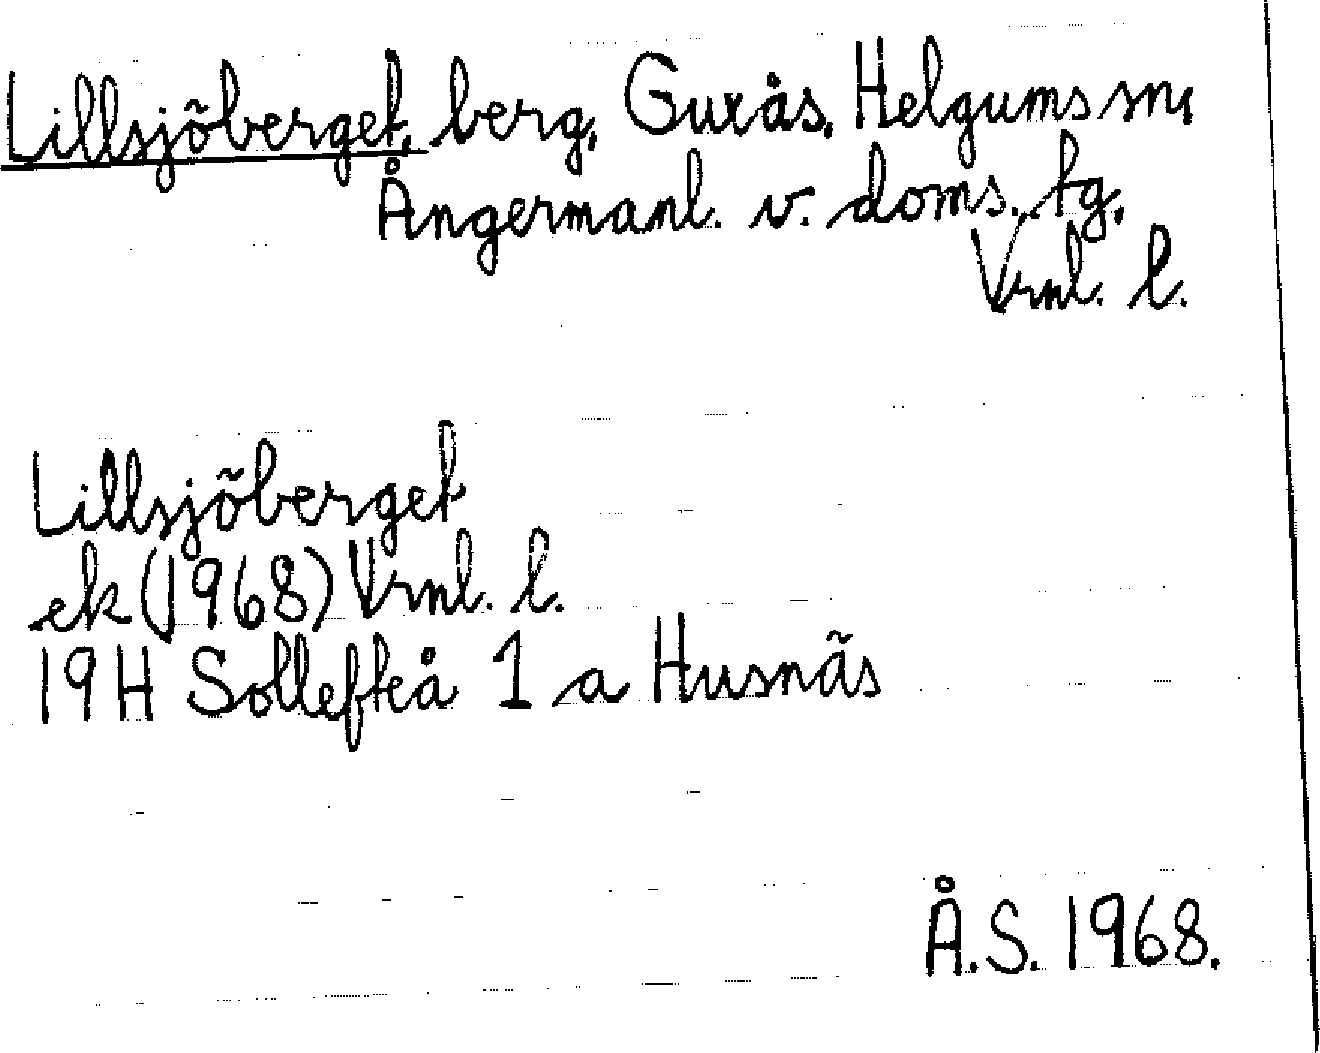 Lillsjöberget, berg, Guxås, Helgums sn,
Ångermanl. v. doms., tg.
Vrnl. l.
Lillsjöberget
ek (1968) Vrnl. l.
19H Sollefteå 1 a Husnäs
Å.S. 1968.